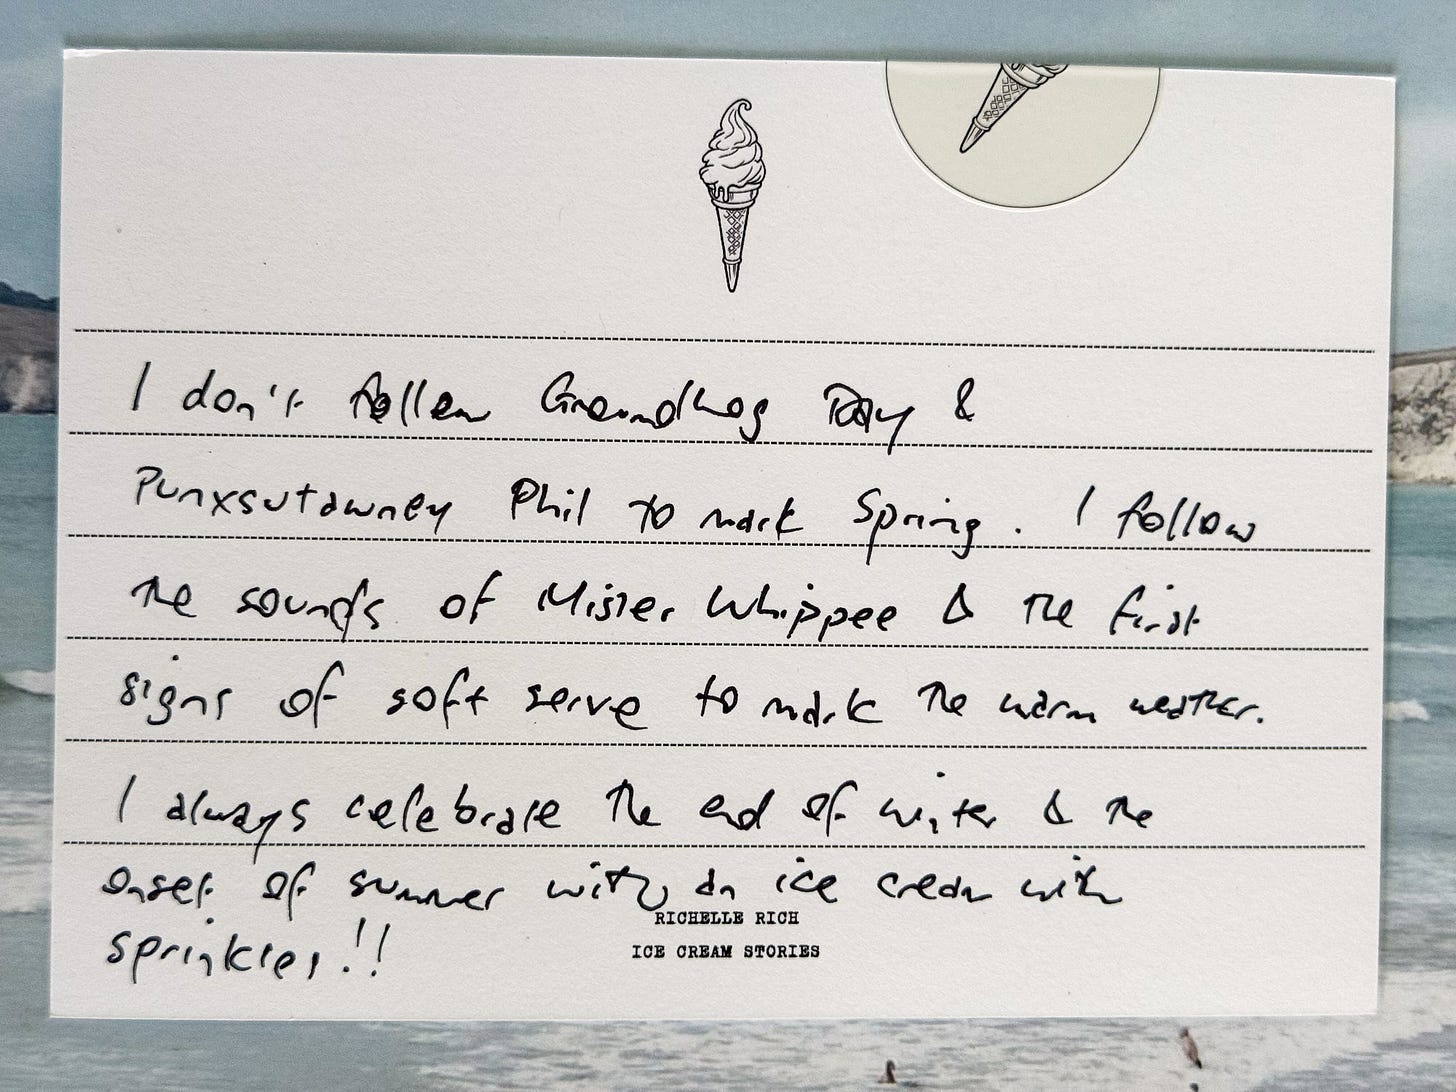 I don't follow Groundhog Day &
Punxsutawney Phil to mark Spring. I follow
the sounds of Mister Whippee & the first
signs of soft serve to mark the warm weather.
I always celebrate the end of winter & the
onset of summer with an ice cream with
sprinkles!!
RICHELLE RICH
ICE CREAM STORIES